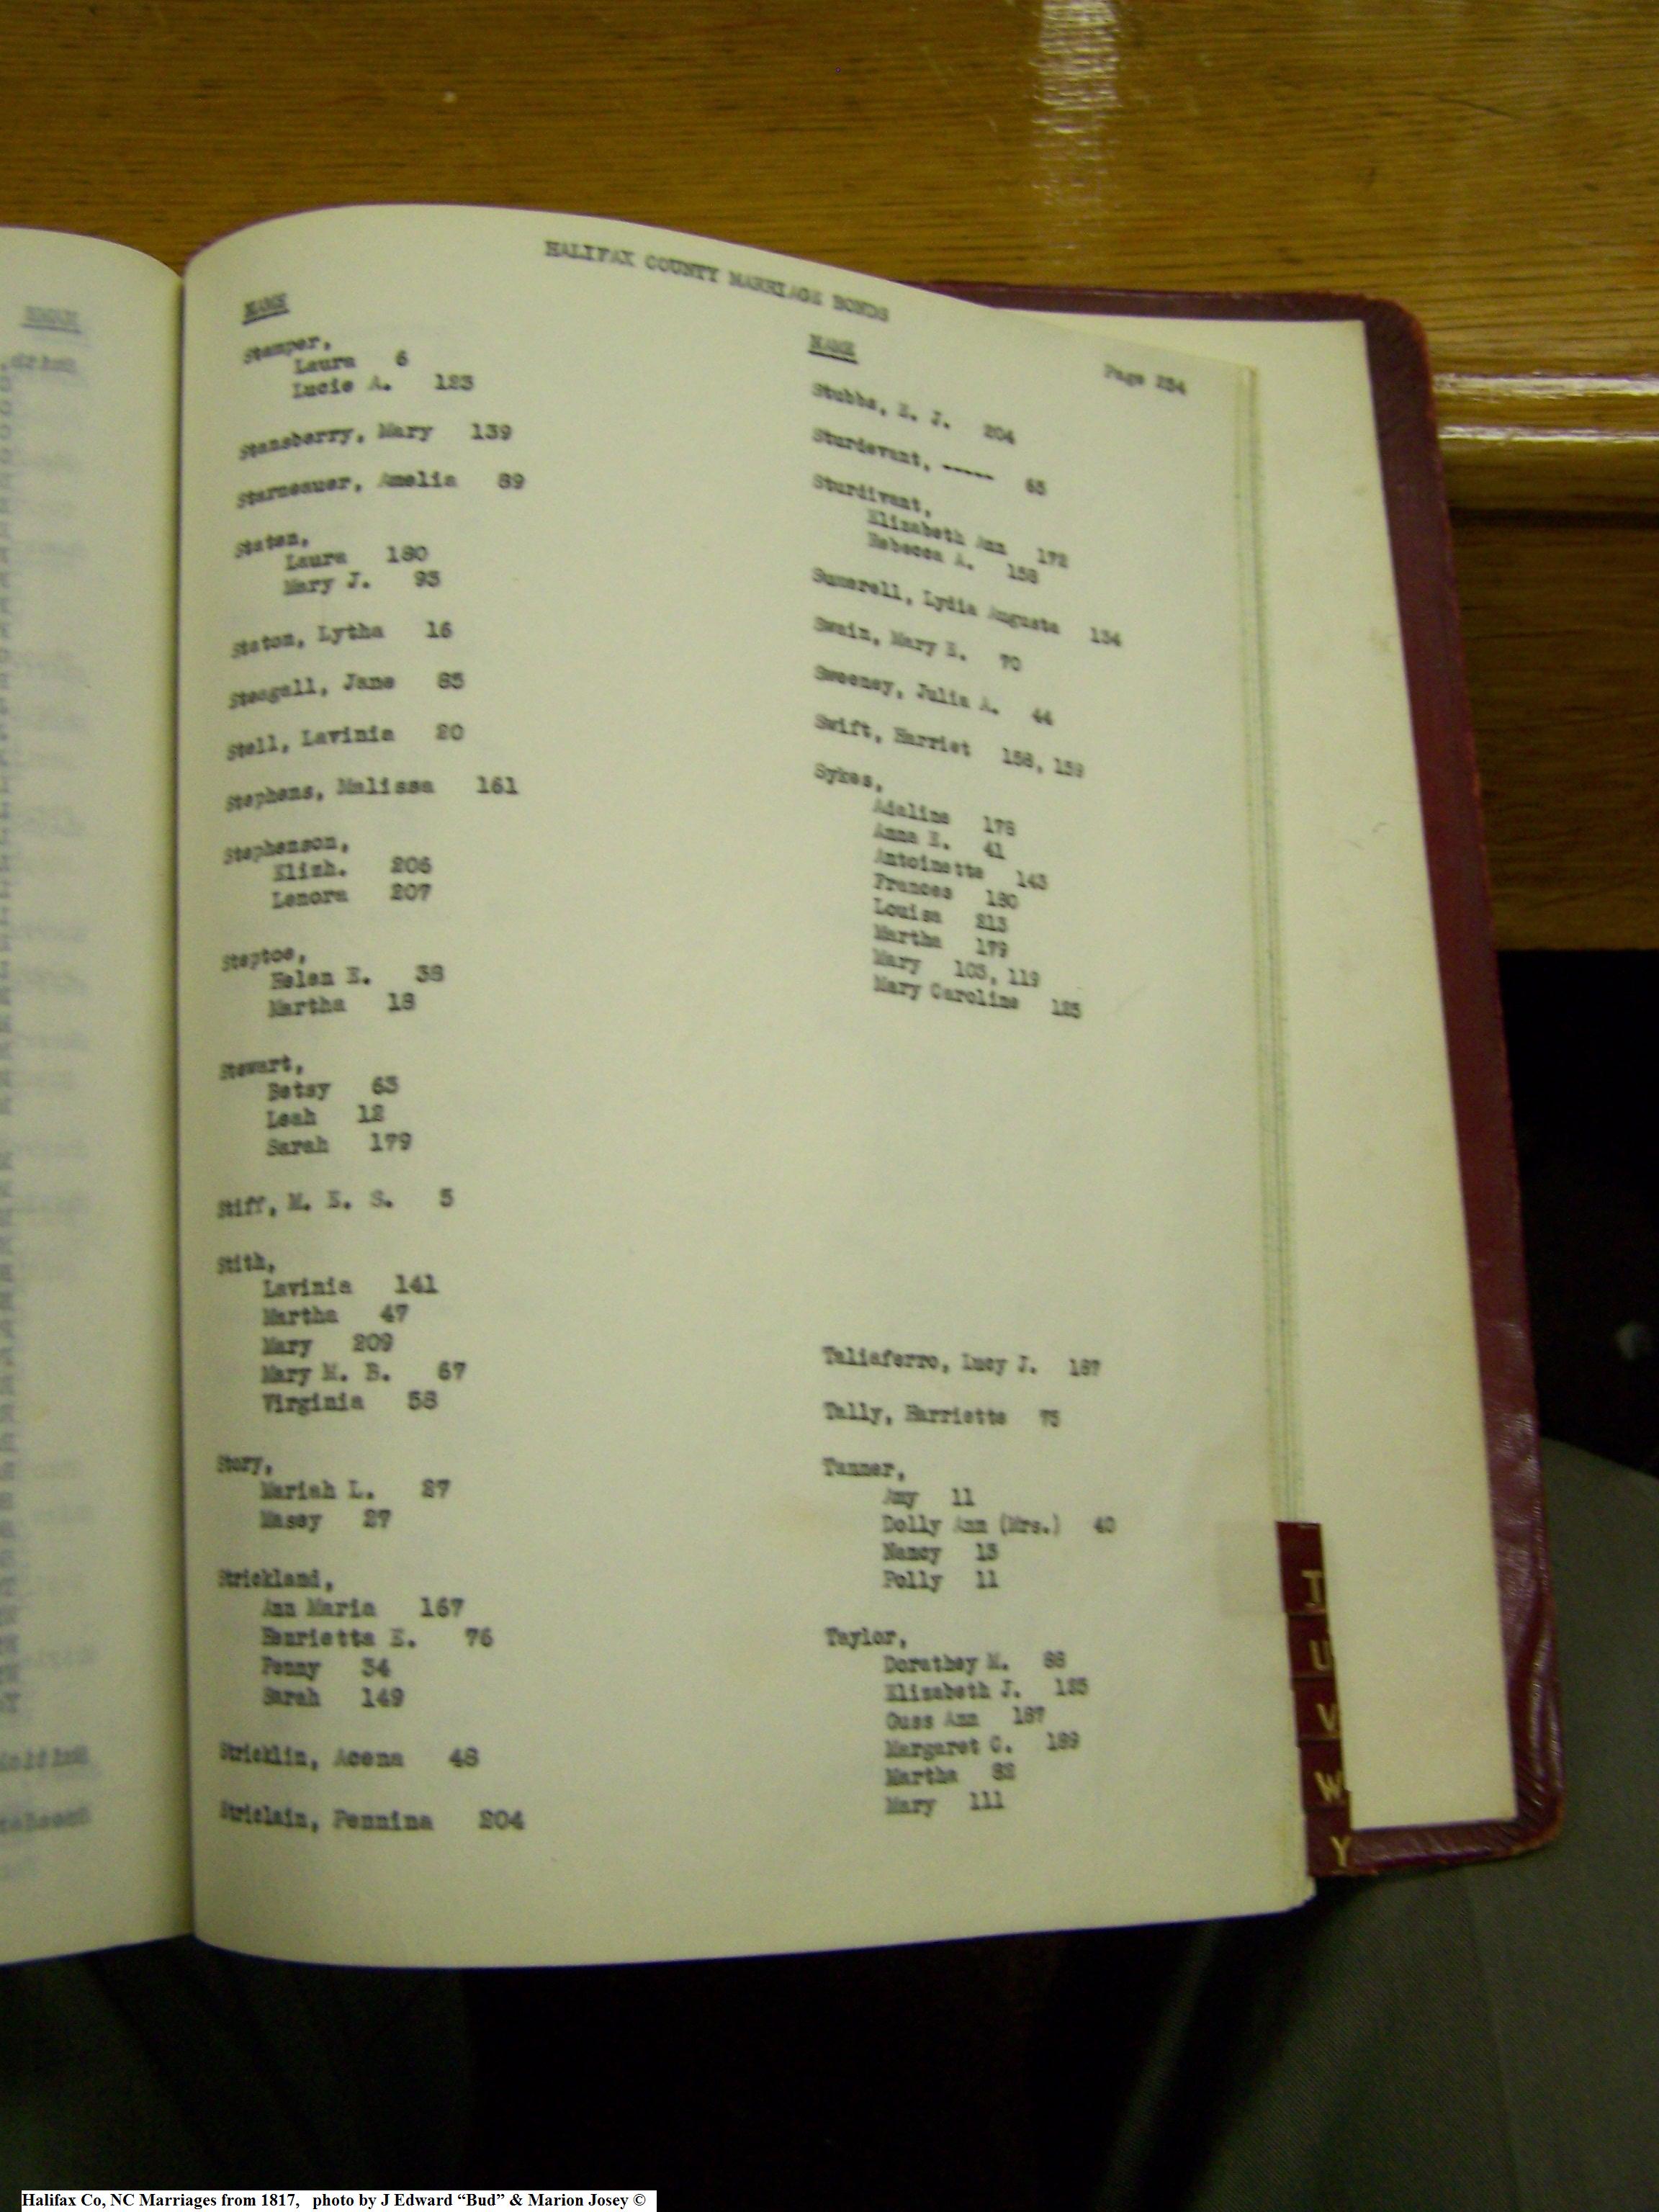 HALIFAX COUNTY MARRIAGE BONDS
Page 234
NAME
Stamper,
Laura 6
Lucie A. 123
Stansberry, Mary 139
Starneauer, Amelia 89
Staten,
Laura 180
Mary J. 93
Staton, Lytha 16
Steagall, Jane 85
Stell, Lavinia 20
Stephens, Malissa 161
Stephenson,
Elizh. 206
Lenora 207
Steptoe,
Helen E. 38
Martha 18
Stewart,
Betsy 63
Leah 12
Sarah 179
Stiff, M. E. S. 5
Stith,
Lavinia 141
Martha 47
Mary 209
Mary M. B. 67
Virginia 58
Story,
Mariah L. 27
Masey 27
Strickland,
Ann Maria 167
Henrietta E. 76
Penny 34
Sarah 149
Stricklin, Acena 48
Striclain, Pennina 204
NAME
Stubbs, E. J. 204
Sturdevant, ----- 65
Sturdivant,
Elizabeth Ann 172
Rebecca A. 158
Sumerell, Lydia Augusta 134
Swain, Mary E. 70
Sweeney, Julia A. 44
Swift, Harriet 158, 159
Sykes,
Adaline 178
Anna E. 41
Antoinette 143
Frances 180
Louisa 213
Martha 179
Mary 103, 119
Mary Caroline 125
Taliaferro, Lucy J. 187
Tally, Harriette 75
Tanner,
Amy 11
Dolly Ann (Mrs.) 40
Nancy 13
Polly 11
Taylor,
Dorathey M. 88
Elizabeth J. 125
Guss Ann 187
Margaret C. 189
Martha 82
Mary 111
T
U
V
W
Y
Halifax Co, NC Marriages from 1817, photo by J Edward “Bud” & Marion Josey ©